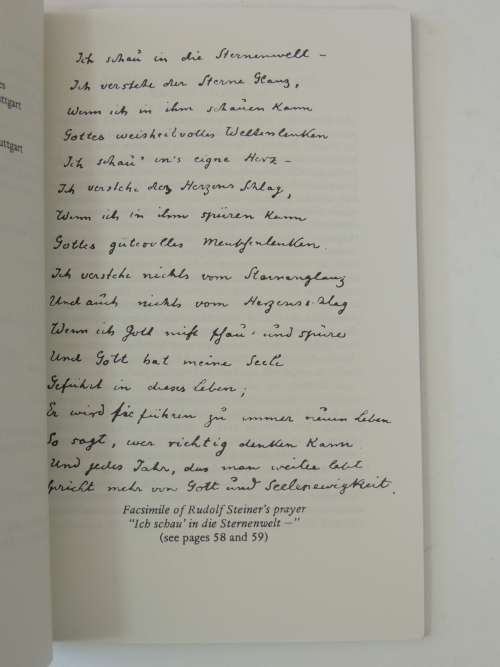 s
ttgart
uttgart
Ich schau' in die Sternenwelt –
Ich verstehe der Sterne Glanz,
Wenn ich in ihm schauen kann
Gottes weisheitvolles Weltenlenken
Ich schau' in's eigne Herz –
Ich verstehe des Herzens Schlag,
Wenn ich in ihm spüren kann
Gottes gütevolles Menschenlenken.
Ich verstehe nichts vom Sternenglanz
Und auch nichts vom Herzensschlag
Wenn ich Gott nicht schau' und spüre
Und Gott hat meine Seele
Geführt in dieses Leben;
Er wird sie führen zu immer neuen Leben
So sagt, wer richtig denken kann.
Und jedes Jahr, das man weiter lebt
Spricht mehr von Gott und Seelenewigkeit.
Facsimile of Rudolf Steiner's prayer
"Ich schau' in die Sternenwelt –"
(see pages 58 and 59)